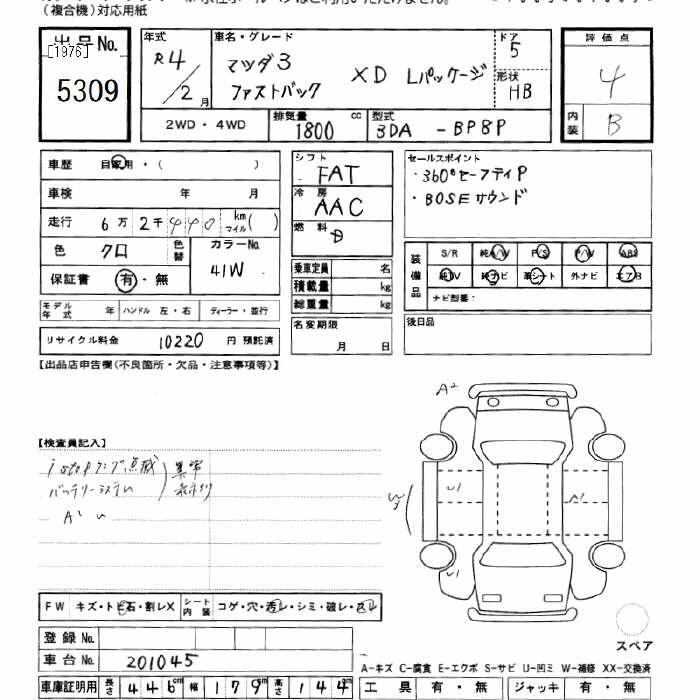 (複合機)対応用紙
出品No.
[1976]
5309
年式
R4/2月
車名・グレード
マツダ3 XD Lパッケージ
ファストバック
ドア
5
形状
HB
評価点
4
内装
B
2WD・4WD
排気量
1800
cc
型式
3DA-BP8P
車歴 自家用・( )
車検 年 月
走行 6万2千440 km マイル( )
色 クロ
色替
カラーNo.
41W
保証書 有・無
モデル年式 年 ハンドル 左・右 ディーラー・並行
リサイクル料金 10220 円 預託済
シフト
FAT
冷房
AAC
燃料
D
乗車定員 名
積載量 kg
総重量 kg
名変期限
月 日
セールスポイント
・360°セーフティP
・BOSEサウンド
装備品
S/R 純A/W P/S P/W ABS
純TV 純ナビ 革シート 外ナビ エアB
ナビ型番:
後日品
【出品店申告欄(不良箇所・欠品・注意事項等)】
【検査員記入】
i stopランプ点滅 異常
バッテリーシステム 表示灯
A' U
A2
W3
U1
A1
U1
FW キズ・トビ石・割レX シート内装 コゲ・穴・汚レ・シミ・破レ・
登録No.
車台No. 201045
車庫証明用 長さ 446cm 幅 179cm 高さ 144cm
スペア
A-キズ C-腐食 E-エクボ S-サビ U-凹ミ W-補修 XX-交換済
工具 有・無 ジャッキ 有・無